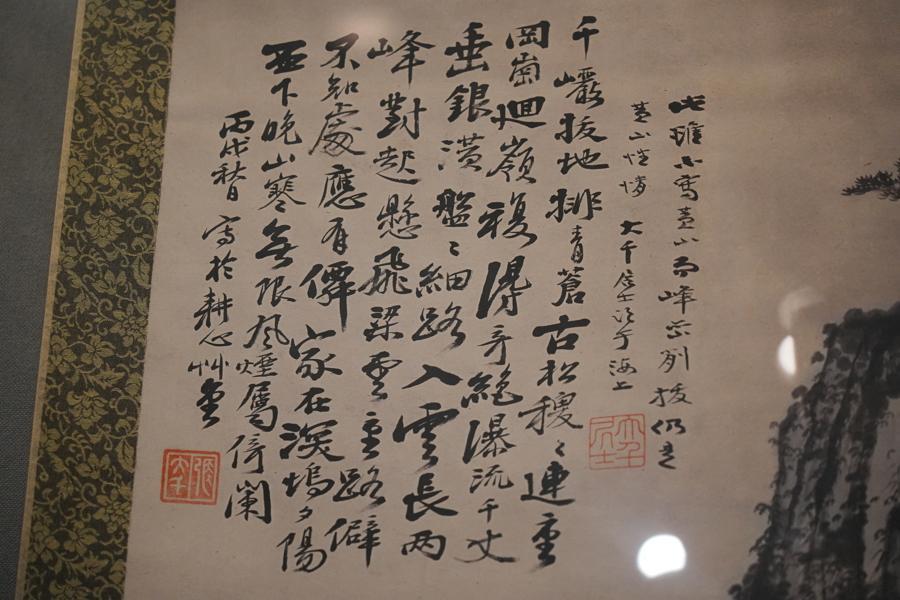 此雖寫黃山而峰列拔仍是
黃山性情 大千居士于海上
大千居士
千巖拔地排青蒼古松稷〻連重
岡迴嶺複得奇絕瀑流千丈
垂銀潢盤〻細路入雲長兩
峰對起懸飛梁雲重路僻
不知處應有僊家在深塢夕陽
西下晚山寒無限風煙屬倚闌
丙戌秋日寫於耕心艸堂
張大千